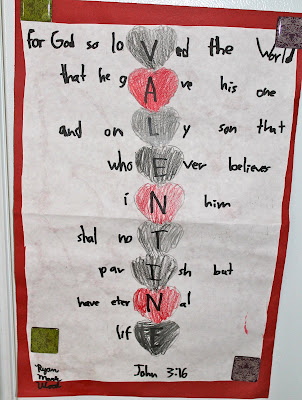 For God so loVed the World
that he gAve his one
and onLy son that
whoEver believer
iN him
shal noT
parIsh but
have eterNal
lifE
John 3:16
Ryan